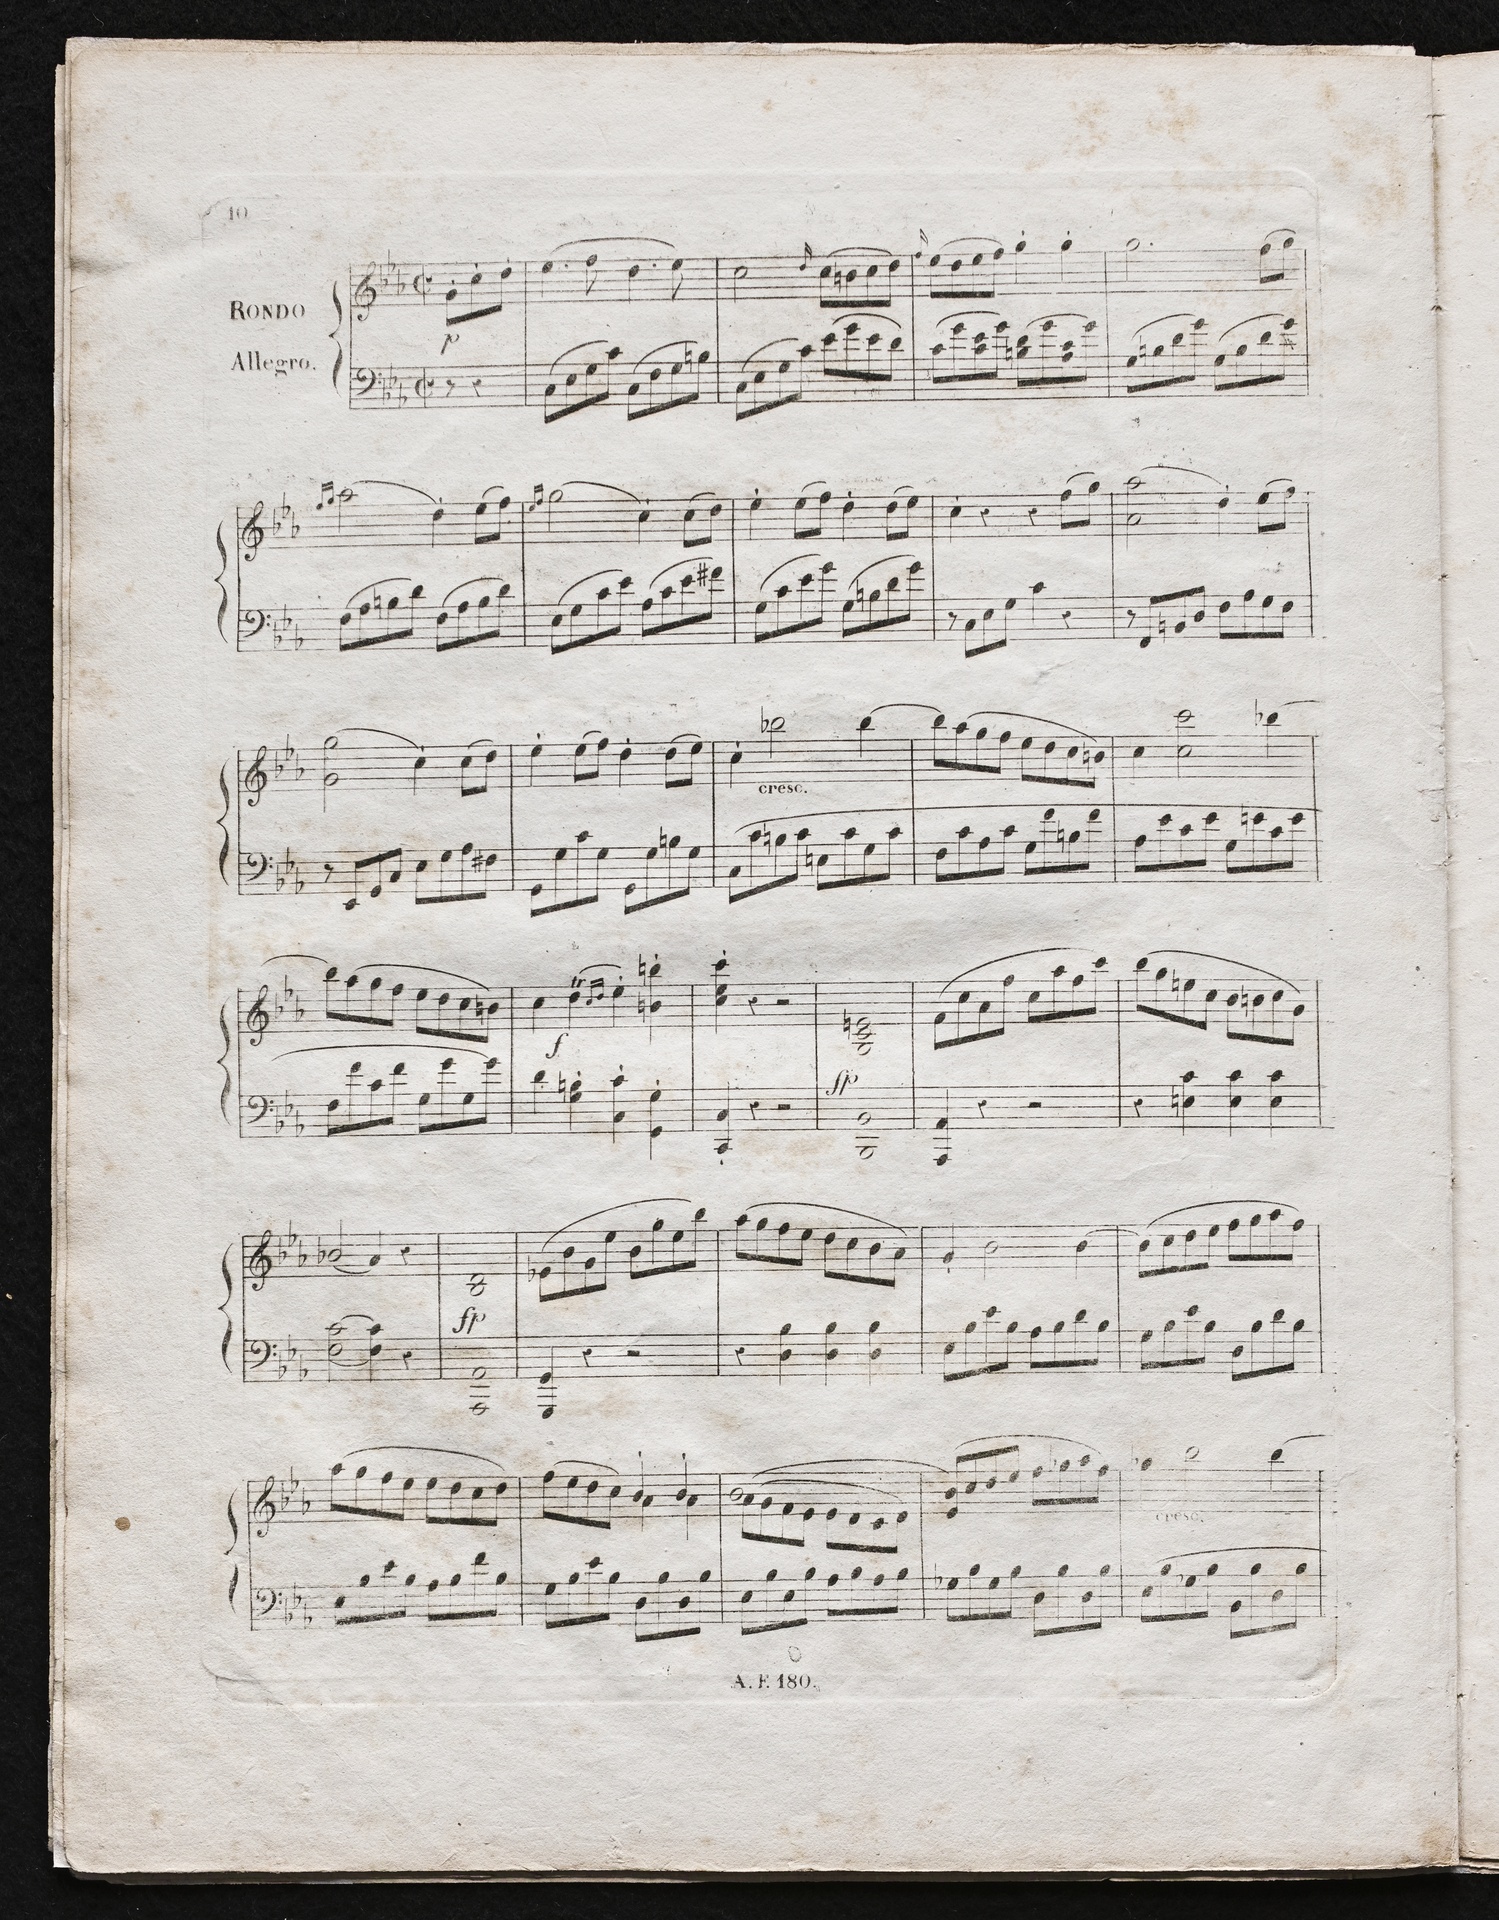 10
RONDO
Allegro.
p
cresc.
f
fp
fp
cresc.
A. F. 180.